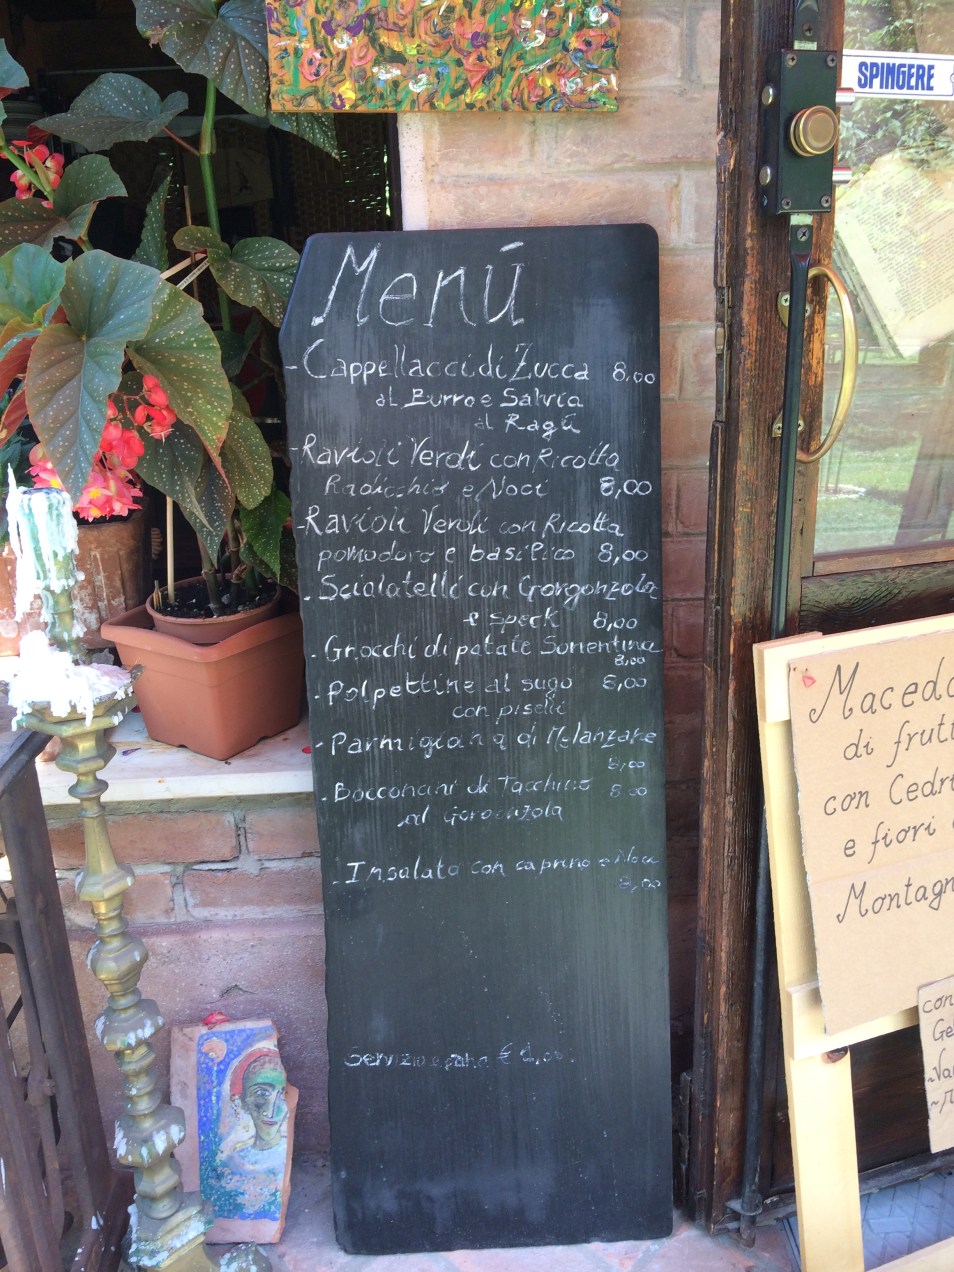 SPINGERE
Menú
- Cappellacci di Zucca 8,00
al Burro e Salvia
al Ragú
- Ravioli Verdi con Ricotta
Radicchio e Noci 8,00
- Ravioli Verdi con Ricotta
pomodoro e basilico 8,00
- Scialatelli con Gorgonzola
e speck 8,00
- Gnocchi di patate Sorrentina
8,00
- Polpettine al sugo 8,00
con piselli
- Parmigiana di Melanzane
8,00
- Bocconcini di Tacchino 8,00
al Gorgonzola
- Insalata con caprino e Noci
8,00
Servizio e pane €
Macedo
di frutt
con Cedr
e fiori
Montagn
con
Ge